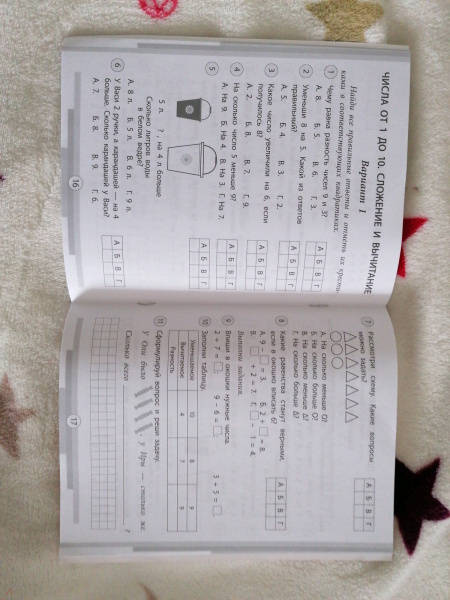 ЧИСЛА ОТ 1 ДО 10. СЛОЖЕНИЕ И ВЫЧИТАНИЕ
Вариант 1
Найди все правильные ответы и отметь их крести-
ками в соответствующих квадратиках.
1 Чему равна разность чисел 9 и 3?
А. 8. Б. 5. В. 6. Г. 3.
А Б В Г
2 Уменьши 8 на 5. Какой из ответов
правильный?
А. 5. Б. 4. В. 3. Г. 2.
А Б В Г
3 Какое число увеличили на 6, если
получилось 8?
А. 2. Б. 8. В. 7. Г. 9.
А Б В Г
4 На сколько число 5 меньше 9?
А. На 9. Б. На 4. В. На 3. Г. На 7.
А Б В Г
5
5 л. ?, на 4 л больше
Сколько литров воды
в белом ведре?
А. 8 л. Б. 5 л. В. 6 л. Г. 9 л.
А Б В Г
6 У Васи 2 ручки, а карандашей — на 4
больше. Сколько карандашей у Васи?
А. 7. Б. 8. В. 9. Г. 6.
А Б В Г
16
7 Рассмотри схему. Какие вопросы
можно задать?
А. На сколько меньше О?
Б. На сколько больше О?
В. На сколько меньше Δ?
Г. На сколько больше Δ?
А Б В Г
8 Какие равенства станут верными,
если в окошко вписать 6?
А. 9 − □ = 3. Б. 2 + □ = 8.
В. □ + 2 = 7. Г. □ − 1 = 4.
А Б В Г
Выполни задания.
9 Впиши в окошки нужные числа.
2 + 7 = □. 9 − 6 = □. 3 + 5 = □.
10 Заполни таблицу.
Уменьшаемое 10 8 9
Вычитаемое 4 7 3
Разность
11 Сформулируй вопрос и реши задачу.
У Оли было, у Иры — столько же.
Сколько всего ?
17